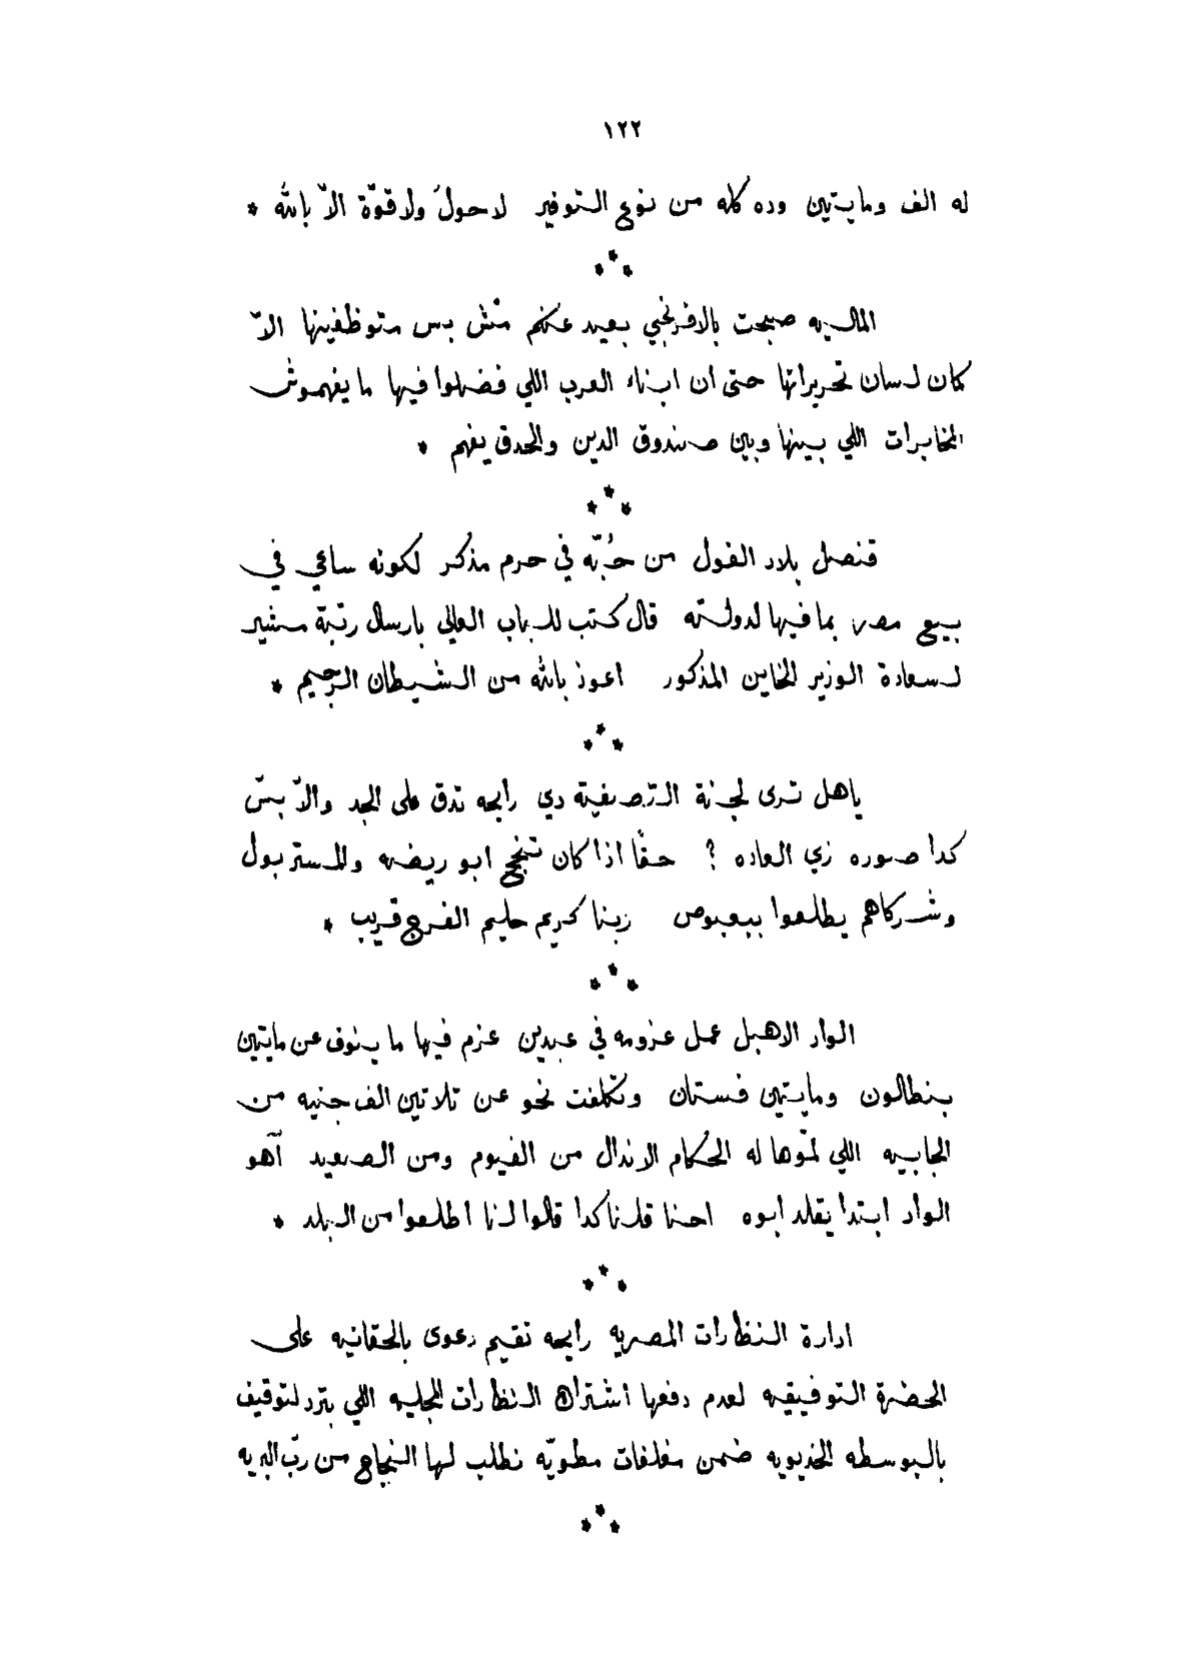 ١٢٢
له الف ومايتين وده كله من نوع التوفير لا حولَ ولا قوّة الاّ بالله *
***
الماليه صبحت بالافرنجي بعيد عنكم مُش بس متوظفينها الاّ
كمان لسان تحريراتها حتى ان ابناء العرب اللي فضلوا فيها ما يفهموش
المخابرات اللي بينها وبين صندوق الدين والحدق يفهم *
***
قنصل بلاد الفول من حُبّه في حرم مذكر لكونه ساعي في
بيع مصر بما فيها لدولته قال كتب للباب العالي بارسال رتبة مشير
لسعادة الوزير الخاين المذكور اعوذ بالله من الشيطان الرجيم *
***
ياهل ترى لجنة التصفية دي رايحه تدق على الجد والاّ بسّ
كدا صوره زي العاده ؟ حقًا اذا كان تنجح ابو ريضه والمستر بول
وشركاهم يطلعوا ببعبوص ربنا كريم حليم الفرج قريب *
***
الواد الاهبل عمل عزومه في عبدين عزم فيها ما ينوف عن مايتين
بنطالون ومايتين فستان وتكلفت نحو عن تلاتين الف جنيه من
الجابيه اللي لمّوها له الحكام الاندال من الفيوم ومن الصعيد آهو
الواد ابتدا يقلد ابوه احنا قلنا كدا قالوا لنا اطلعوا من البلد *
***
ادارة النظارات المصريه رايحه تقيم دعوى بالحقانيه على
الحضرة التوفيقيه لعدم دفعها اشتراك النظارات المجليه اللي بترد لتوقيف
بالبوسطه الخديويه ضمن مغلفات مطويّه نطلب لها النجاح من ربّ البريه
***